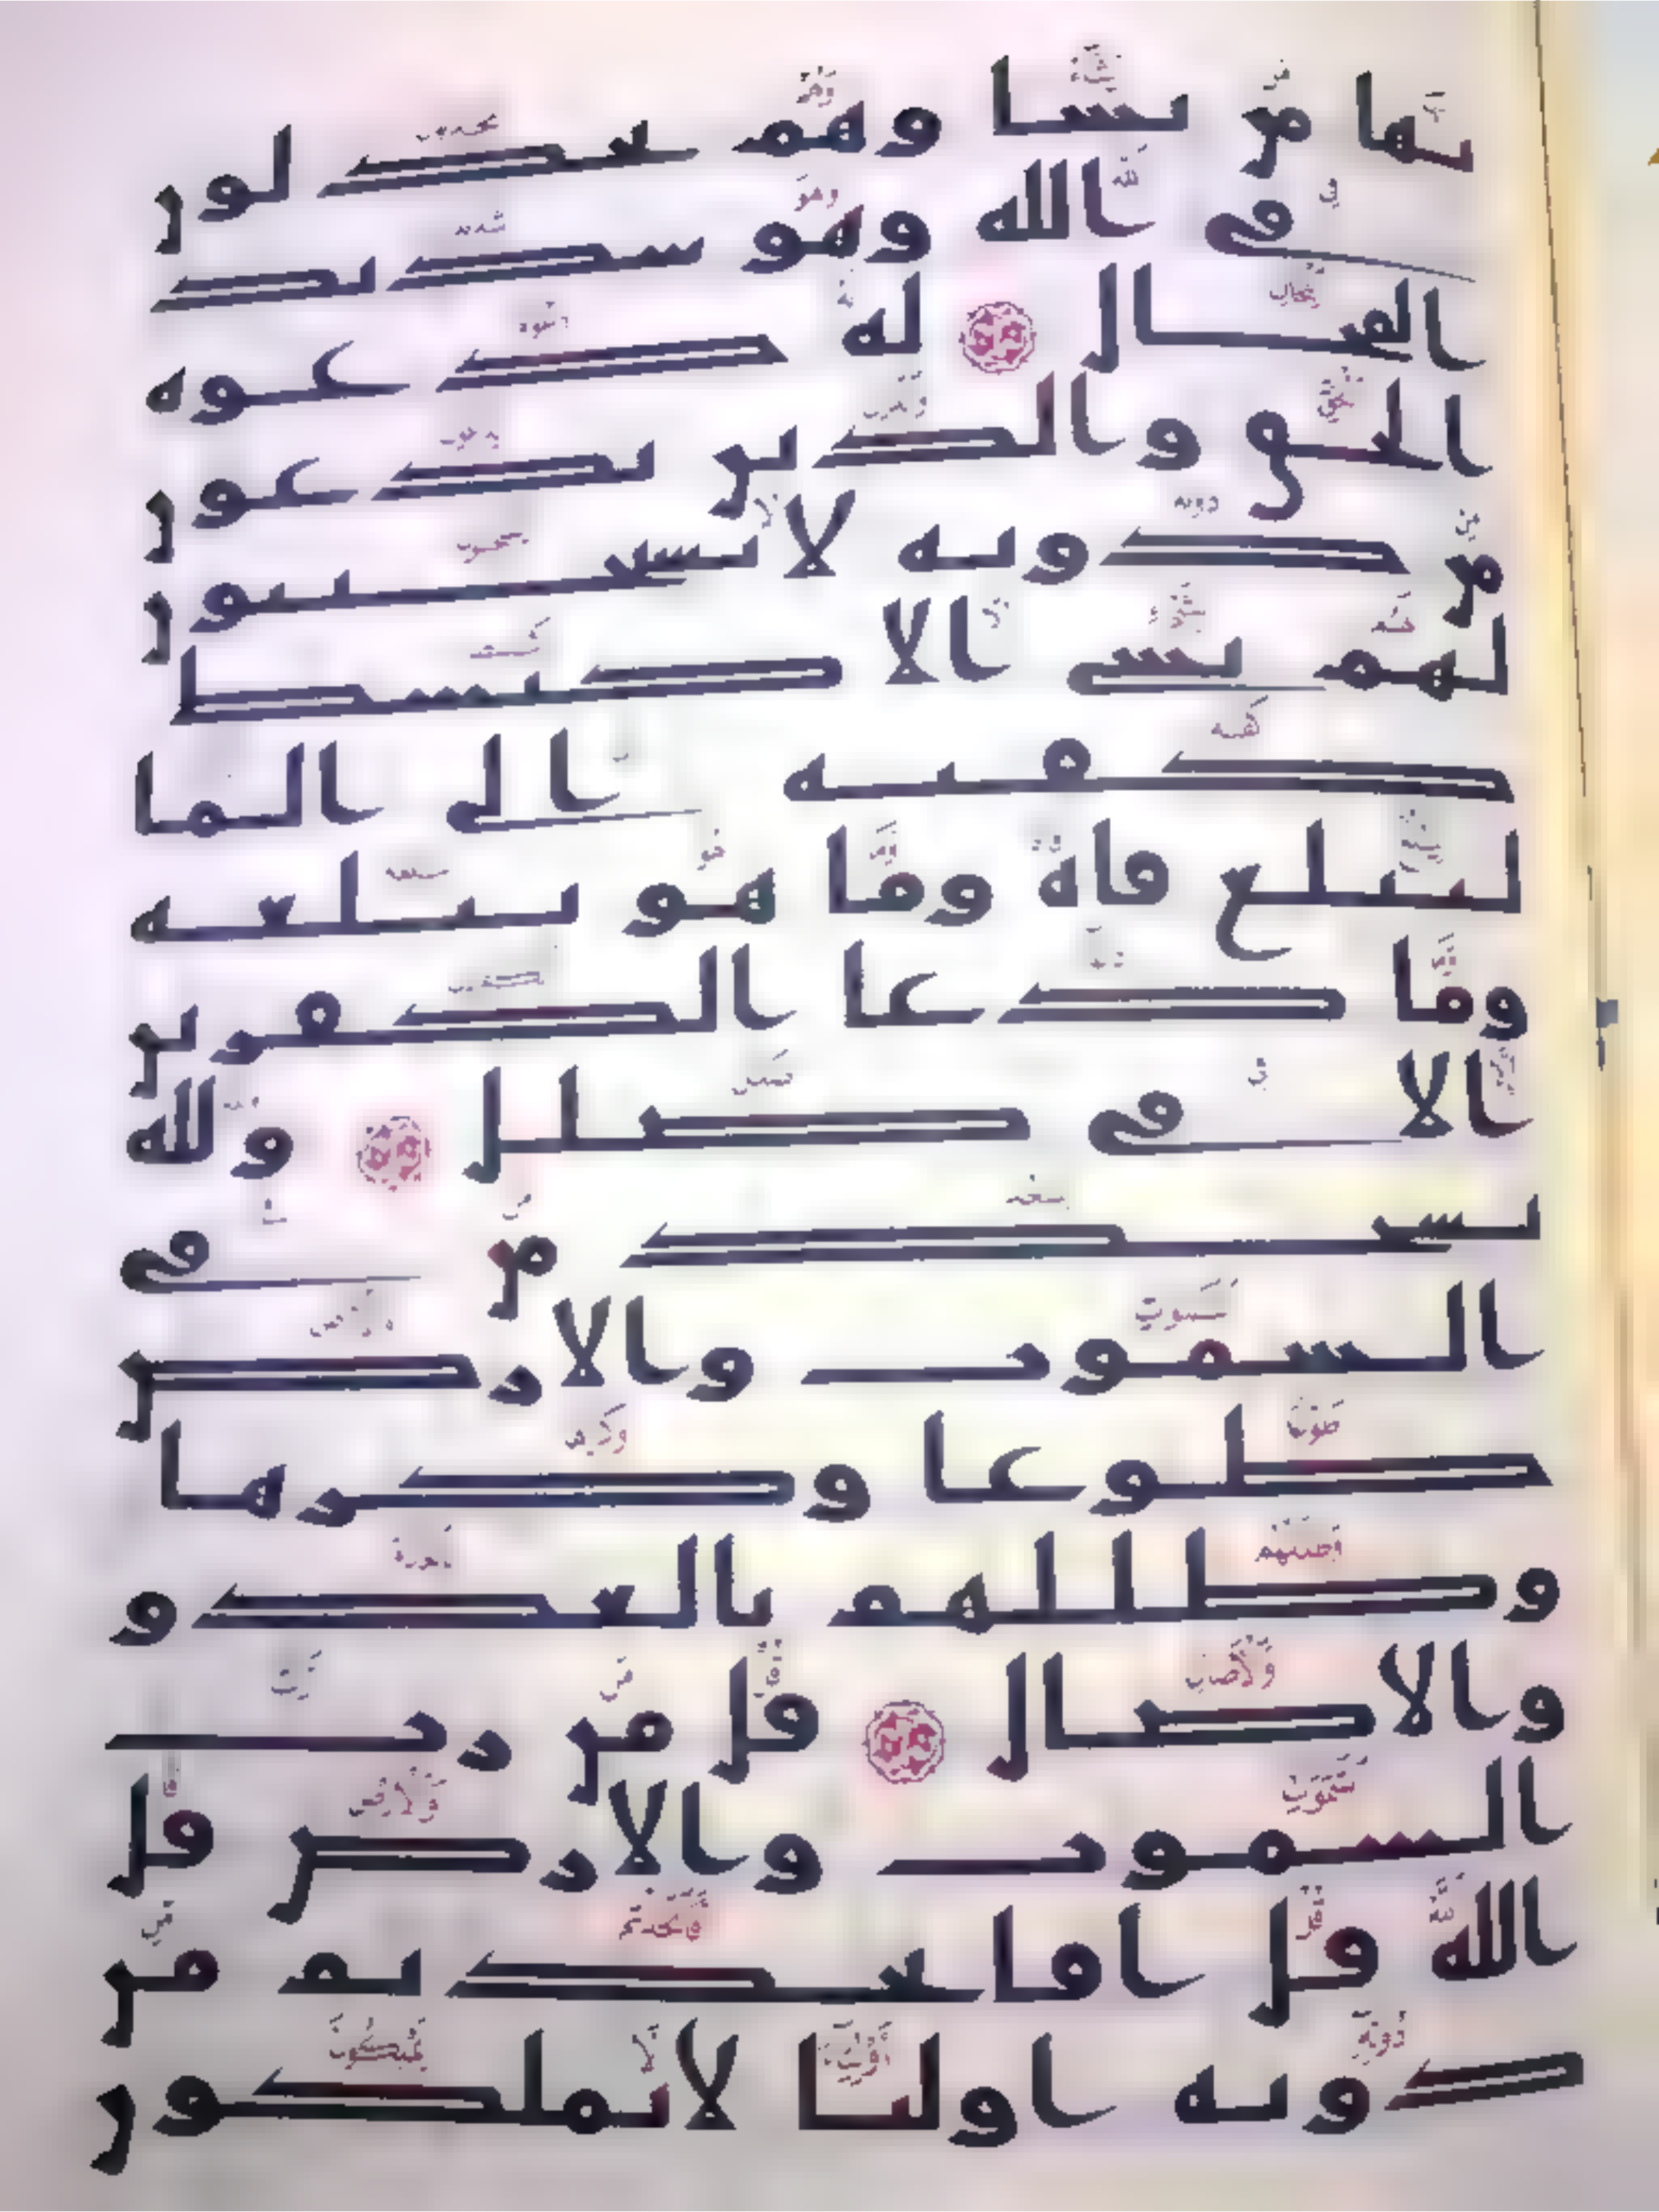 بها من يشا وهم يجدلون
في الله وهو شديد
المحال له دعوه
الحق والذين يدعون
من دونه لا يستجيبون
لهم بشي الا كبسط
كفيه الى الما
ليبلغ فاه وما هو ببلغه
وما دعا الكفرين
الا في ضلل ولله
يسجد من في
السموت والارض
طوعا وكرها
وظللهم بالغدو
والاصال قل من رب
السموت والارض قل
الله قل افاتخذتم من
دونه اوليا لا يملكون